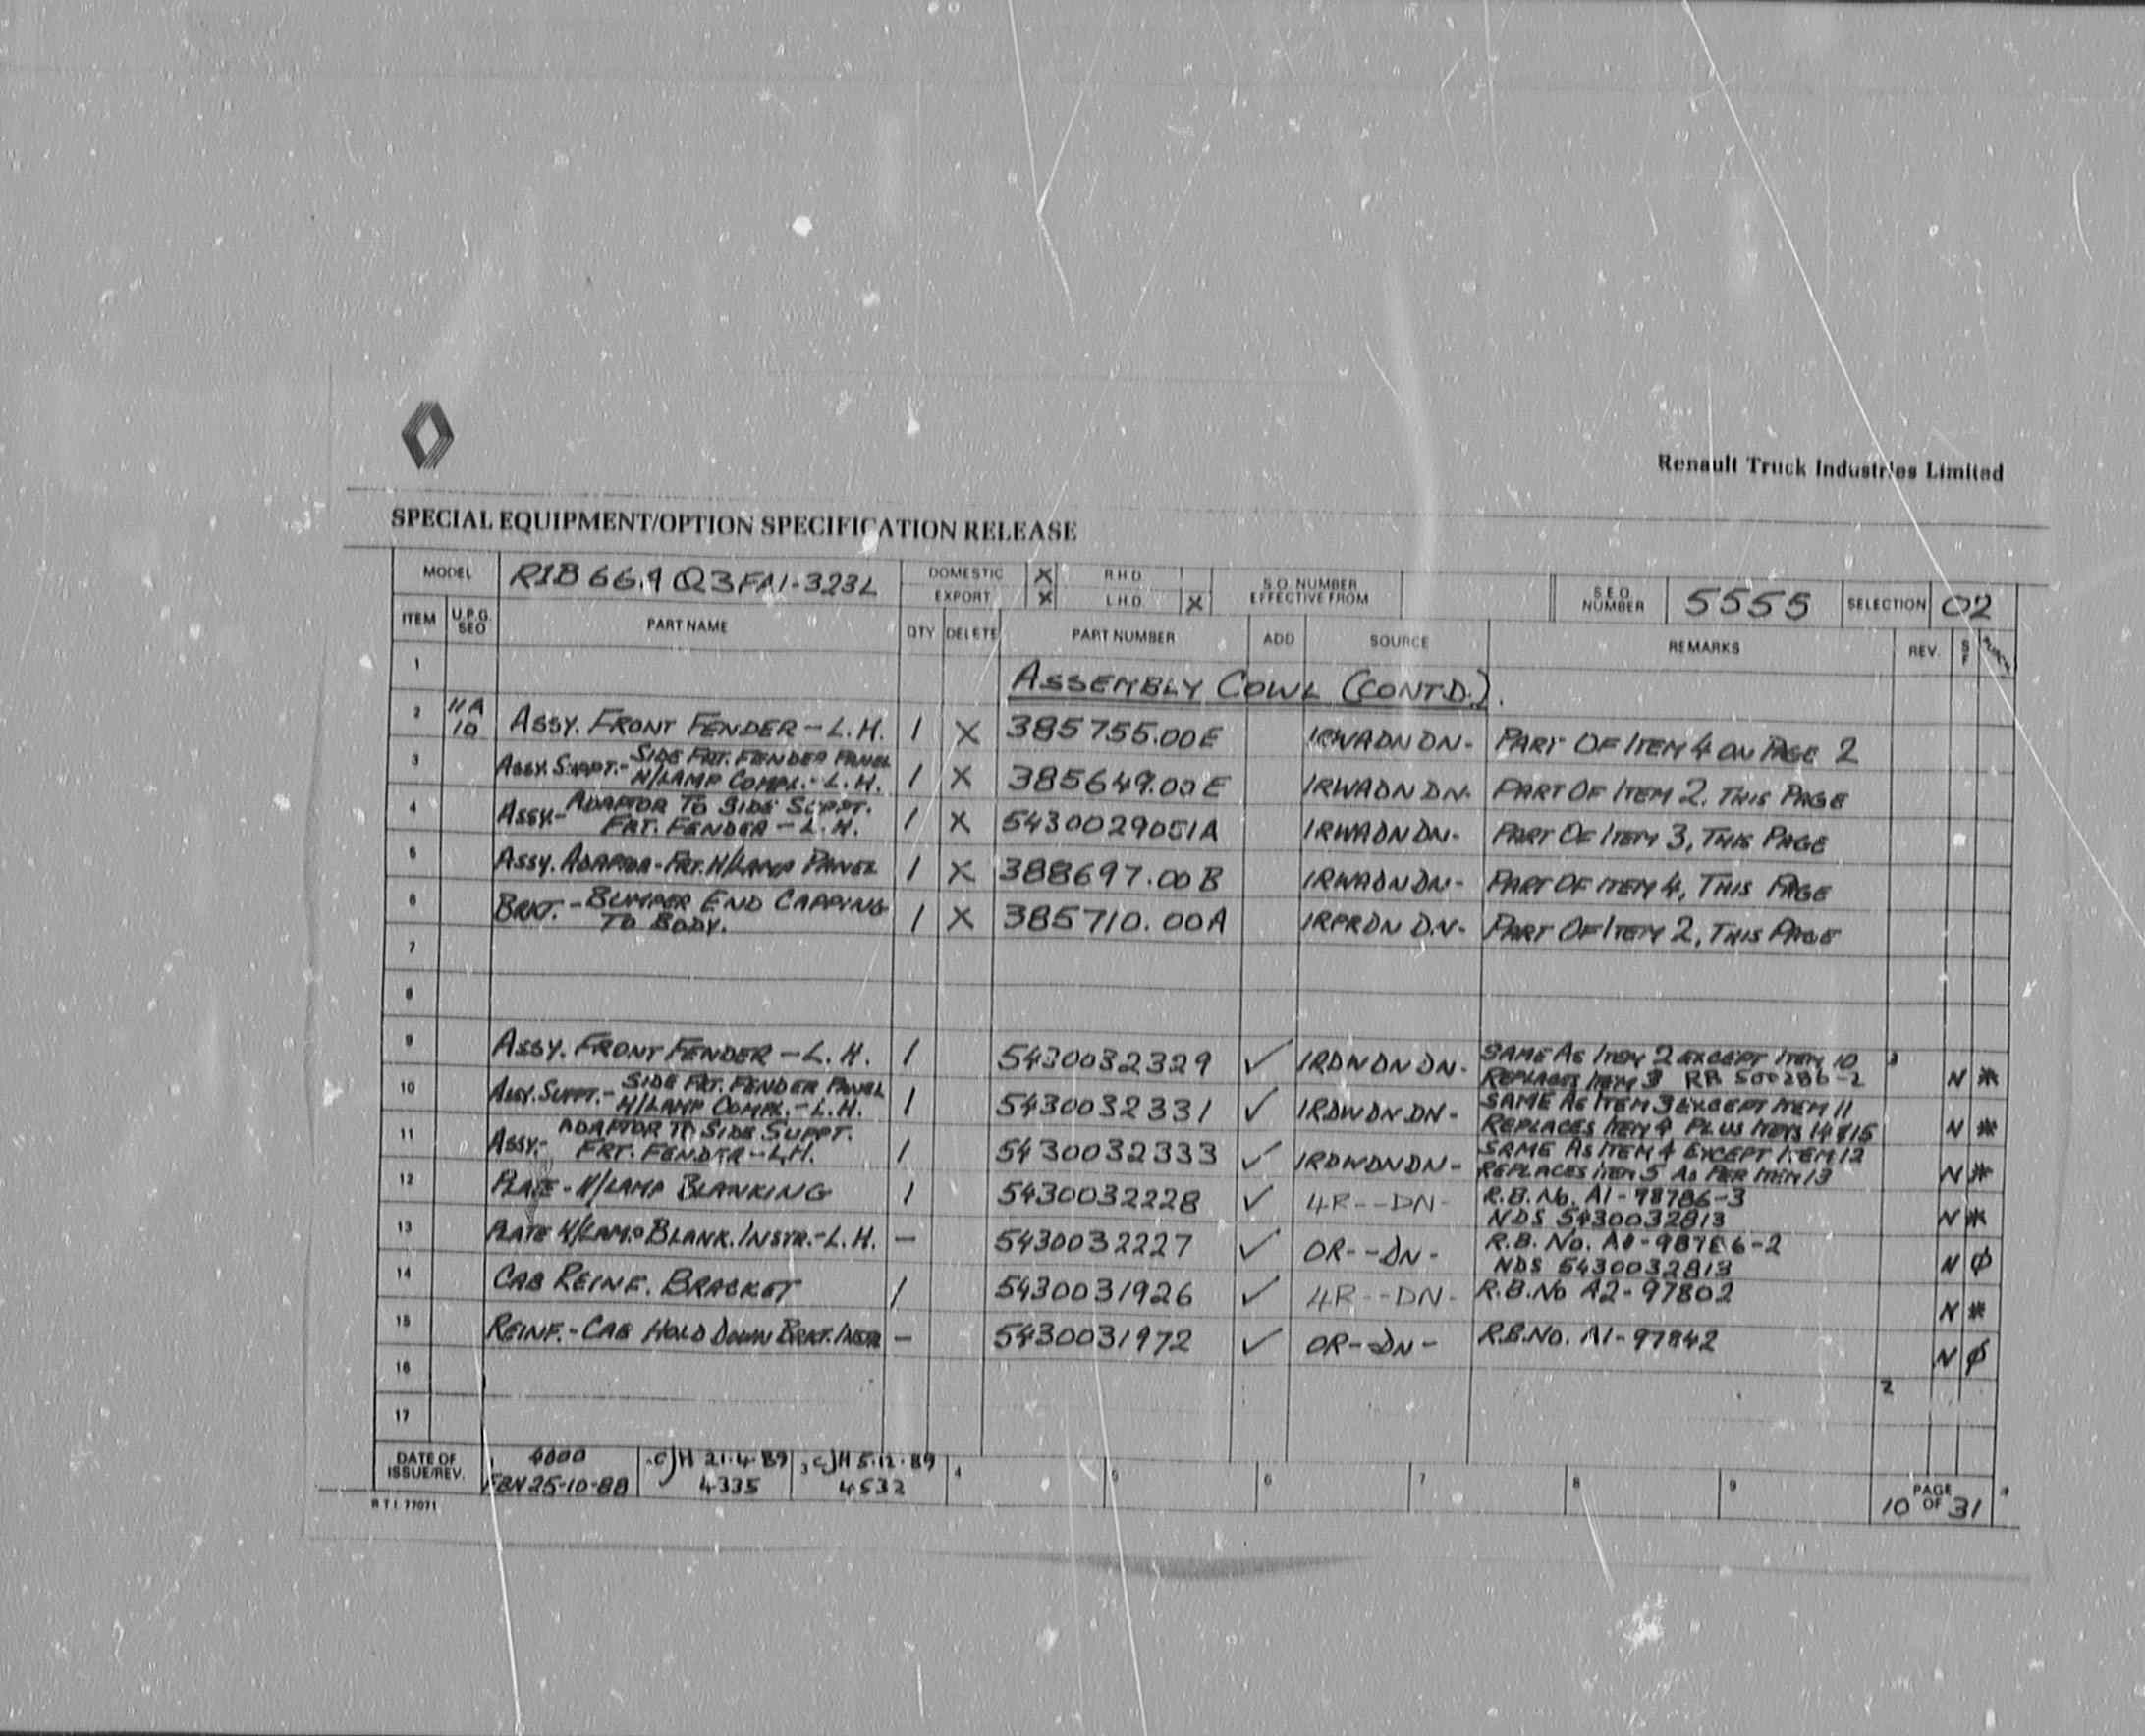 Renault Truck Industries Limited
SPECIAL EQUIPMENT/OPTION SPECIFICATION RELEASE
MODEL R1B 66.9 Q3FA1-323L DOMESTIC X R.H.D. S.O. NUMBER EFFECTIVE FROM S.E.O. NUMBER 5555 SELECTION 02
EXPORT X L.H.D. X
ITEM U.P.G. SEO PART NAME QTY DELETE PART NUMBER ADD SOURCE REMARKS REV. S F
1 ASSEMBLY COWL (CONTD.).
2 11A 10 ASSY. FRONT FENDER - L.H. 1 X 385755.00E IRWADNDN- PART OF ITEM 4 ON PAGE 2
3 ASSY. SUPPT.- SIDE FRT. FENDER PANEL H/LAMP COMPL.- L.H. 1 X 385649.00E IRWADNDN- PART OF ITEM 2, THIS PAGE
4 ASSY.- ADAPTOR TO SIDE SUPPT. FRT. FENDER - L.H. 1 X 5430029051A IRWADNDN- PART OF ITEM 3, THIS PAGE
5 ASSY. ADAPTOR - FRT. H/LAMP PANEL 1 X 388697.00B IRWADNDN- PART OF ITEM 4, THIS PAGE
6 BRKT. - BUMPER END CAPPING TO BODY. 1 X 385710.00A IRPRDNDN- PART OF ITEM 2, THIS PAGE
7
8
9 ASSY. FRONT FENDER - L.H. 1 5430032329 ✓ IRDWDNDN- SAME AS ITEM 2 EXCEPT ITEM 10 3
REPLACES ITEM 3 RB 500286-2 N *
10 ASSY. SUPPT.- SIDE FRT. FENDER PANEL H/LAMP COMPL.- L.H. 1 5430032331 ✓ IRDWDNDN- SAME AS ITEM 3 EXCEPT ITEM 11
REPLACES ITEM 4 PLUS ITEMS 14 & 15 N *
11 ASSY.- ADAPTOR TO SIDE SUPPT. FRT. FENDER - L.H. 1 5430032333 ✓ IRDWDNDN- SAME AS ITEM 4 EXCEPT ITEM 12
REPLACES ITEM 5 AS PER ITEM 13 N *
12 PLATE - H/LAMP BLANKING 1 5430032228 ✓ 4R--DN- R.B. No. A1-98786-3
NDS 5430032813 N *
13 PLATE H/LAMP BLANK. INSTR.- L.H. - 5430032227 ✓ OR--DN- R.B. No. A0-98786-2
NDS 5430032813 N ϕ
14 CAB REINF. BRACKET 1 5430031926 ✓ 4R--DN- R.B. No A2-97802 N *
15 REINF.- CAB HOLD DOWN BRKT. INSTR - 5430031972 ✓ OR--DN- R.B. No. A1-97842 N ϕ
16 2
17
DATE OF ISSUE/REV. 1 4000 FBN 25-10-88 CJH 21.4.89 4335 3 CJH 5.12.89 4532 4 5 6 7 8 9 PAGE 10 OF 31
R T I 77071